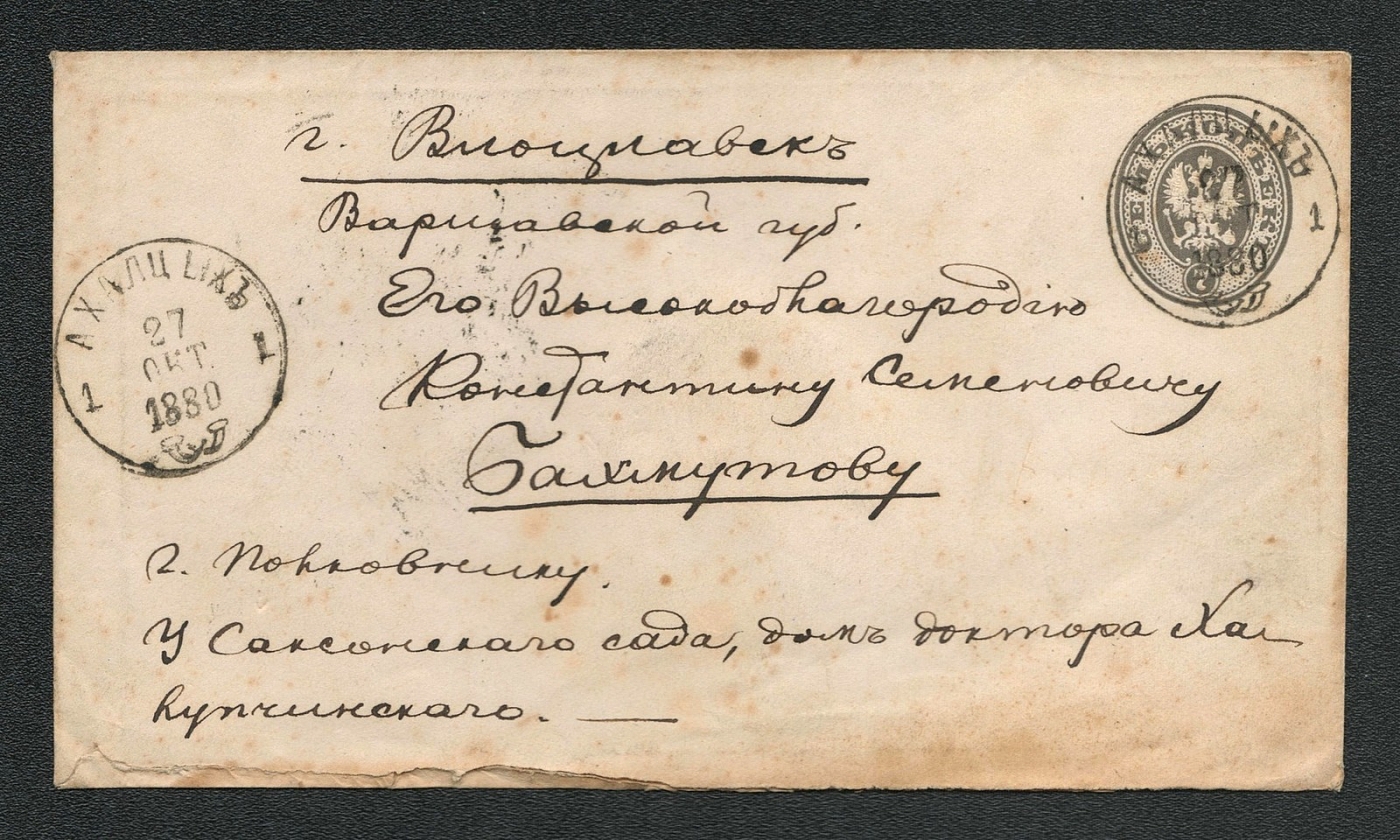 г. Влоцлавскъ
Варшавской губ.
Его Высокоблагородію
Константину Семеновичу
Бахмутову
г. Полковнику.
У Саксонскаго сада, домъ доктора Ха-
лупчинскаго. —
АХАЛЦЫХЪ
1 1
27
ОКТ.
1880
АХАЛЦЫХЪ
27
1
1880
7